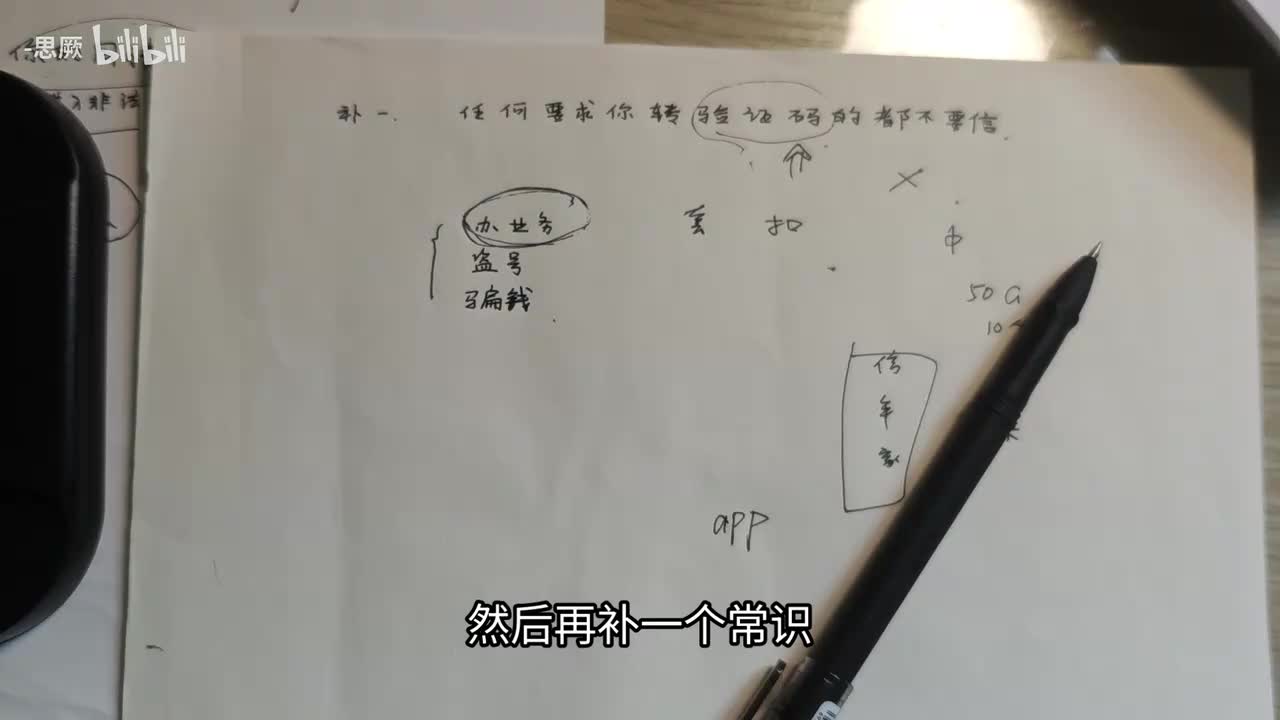 -思厥 bilibili
非法
补一. 任何要求你转验证码的都不要信.
办业务 套 扣
盗号
骗钱.
50G
10
信
年
家
app
然后再补一个常识